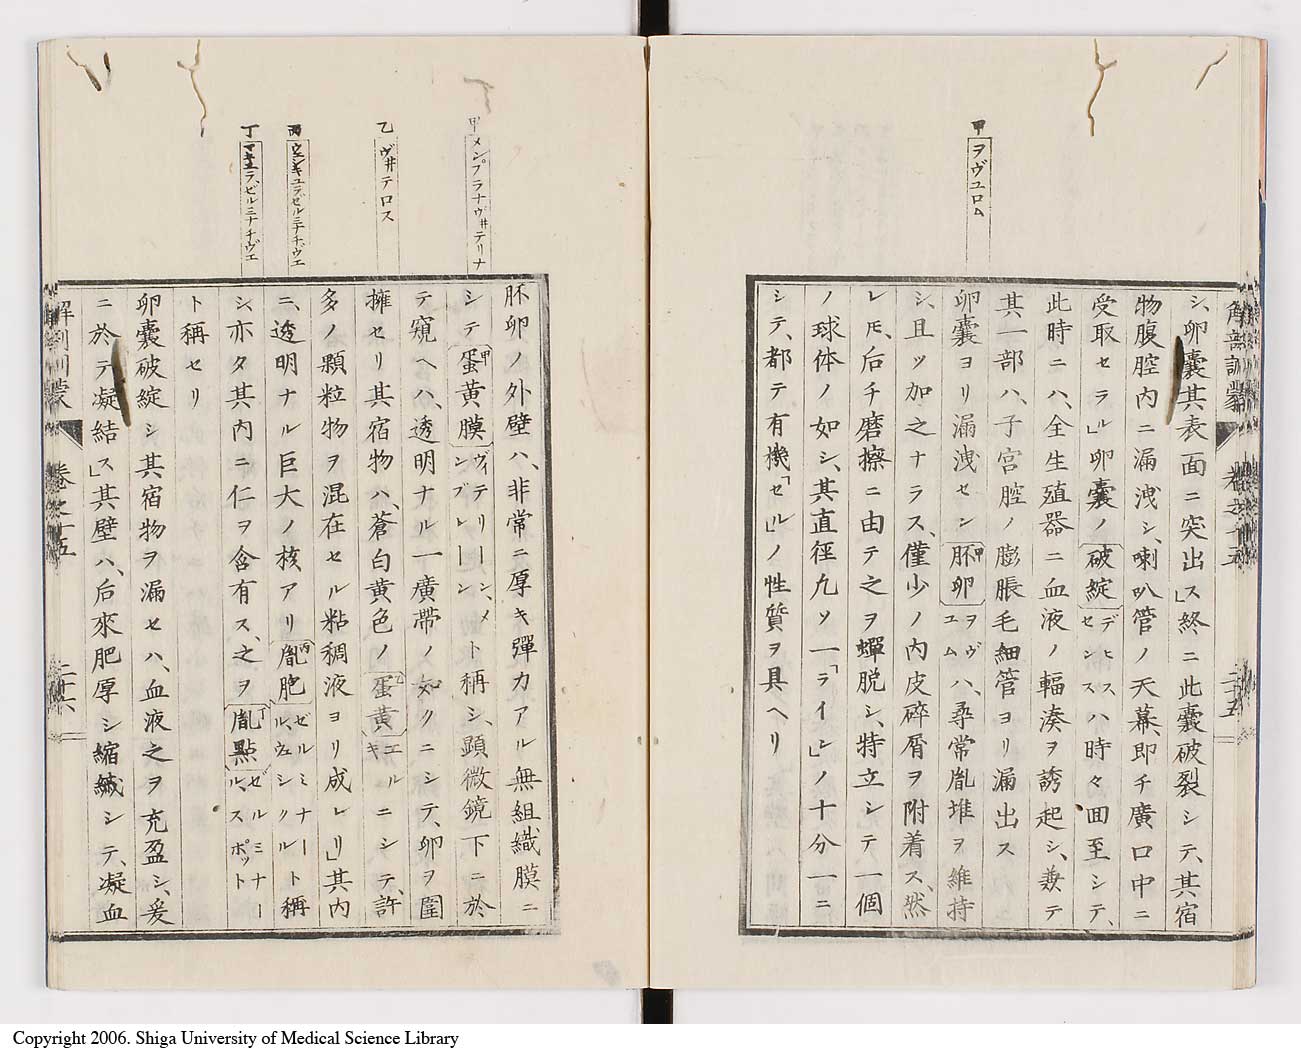 解剖訓蒙 卷之十五 二十五
甲 ヲヴユロム
シ、卵囊其表面ニ突出ス」終ニ此囊破裂シテ、其宿
物腹腔内ニ漏洩シ、喇叭管ノ天幕、即チ廣口中ニ
受取セラル」卵囊ノ破綻デヒスセンスハ時々回至シテ、
此時ニハ、全生殖器ニ血液ノ輻湊ヲ誘起シ、兼テ
其一部ハ、子宮腔ノ膨脹毛細管ヨリ漏出ス
卵囊ヨリ漏洩セン胚卵甲ヲヴユムハ、尋常胤堆ヲ維持
シ、且ツ加之ナラス、僅少ノ内皮碎屑ヲ附着ス、然
レ𪜈、后チ磨擦ニ由テ之ヲ蟬脱シ、特立シテ一個
ノ球体ノ如シ、其直徑九ソ一「ライレ」ノ十分一ニ
シテ、都テ有機「セル」ノ性質ヲ具ヘリ
甲 メンプラナヴ井テリナ
乙 ヴ井テロス
丙 ウェシキュラゼルミナチヴェ
丁 マキュラ、ゼルミナチヴェ
胚卵ノ外壁ハ、非常ニ厚キ彈力アル無組織膜ニ
シテ蛋黄膜甲ヴィテリーン、メンブレーント稱シ、顕微鏡下ニ於
テ窺ヘハ、透明ナル一廣帶ノ如クニシテ、卵ヲ圍
擁セリ其宿物ハ、蒼白黄色ノ蛋黄乙エルキニシテ、許
多ノ顆粒物ヲ混在セル粘稠液ヨリ成レリ」其内
ニ、透明ナル巨大ノ核アリ胤胞丙ゼルミナールウェシクルト稱
シ、亦タ其内ニ仁ヲ含有ス、之ヲ胤點丁ゼルミナール、スポット
ト稱セリ
卵囊破綻シ其宿物ヲ漏セハ、血液之ヲ充盈シ、爰
ニ於テ凝結ス」其壁ハ、后來肥厚シ縮緘シテ、凝血
解剖訓蒙 卷之十五 二十六
Copyright 2006. Shiga University of Medical Science Library